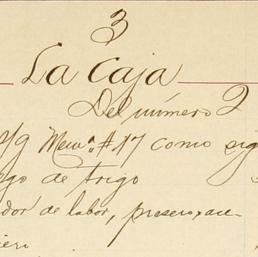 3
La Caja
Del número 2
s/g Mem.ᵃ #17 como sig
ego de trigo
ador de labor, preso, ace
ieri